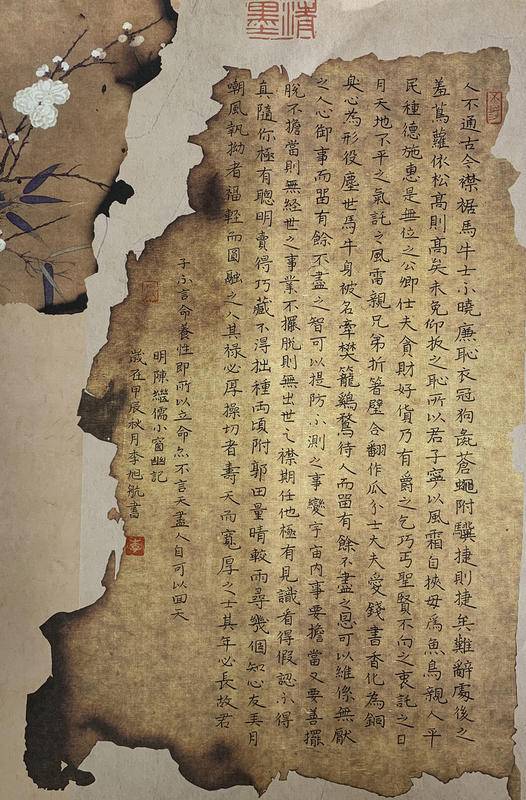 清墨
人不通古今襟裾馬牛士不曉廉恥衣冠狗彘蒼蠅附驥捷則捷矣難辭處後之
羞蔦蘿依松高則高矣未免仰扳之恥所以君子寧以風霜自挾毋爲魚鳥親人平
民種德施惠是無位之公卿仕夫貪財好貨乃有爵之乞丐聖賢不向之衷託之日
月天地不平之氣託之風雷親兄弟折箸璧合翻作瓜分士大夫愛錢書香化為銅
臭心為形役塵世馬牛身被名牽樊籠鷄鶩待人而留有餘不盡之恩可以維係無厭
之人心御事而留有餘不盡之智可以提防不測之事變宇宙內事要擔當又要善擺
脫不擔當則無經世之事業不擺脫則無出世之襟期任他極有見識看得假認不得
真隨你極有聰明賣得巧藏不得拙種兩頃附郭田量晴較雨尋幾個知心友弄月
嘲風執拗者福輕而圓融之人其祿必厚操切者壽夭而寬厚之士其年必長故君
子不言命養性即所以立命亦不言天盡人自可以回天
明陳繼儒小窗幽記
歲在甲辰秋月李旭航書